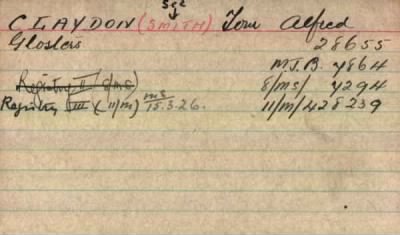 see
CLAYDON (SMITH) Tom Alfred
Glosters 28655
M.T.B. 4864
Registry II 8/MS) 8/MS/ 4294
Registry III (11/M) MS 15.3.26. 11/M/428239